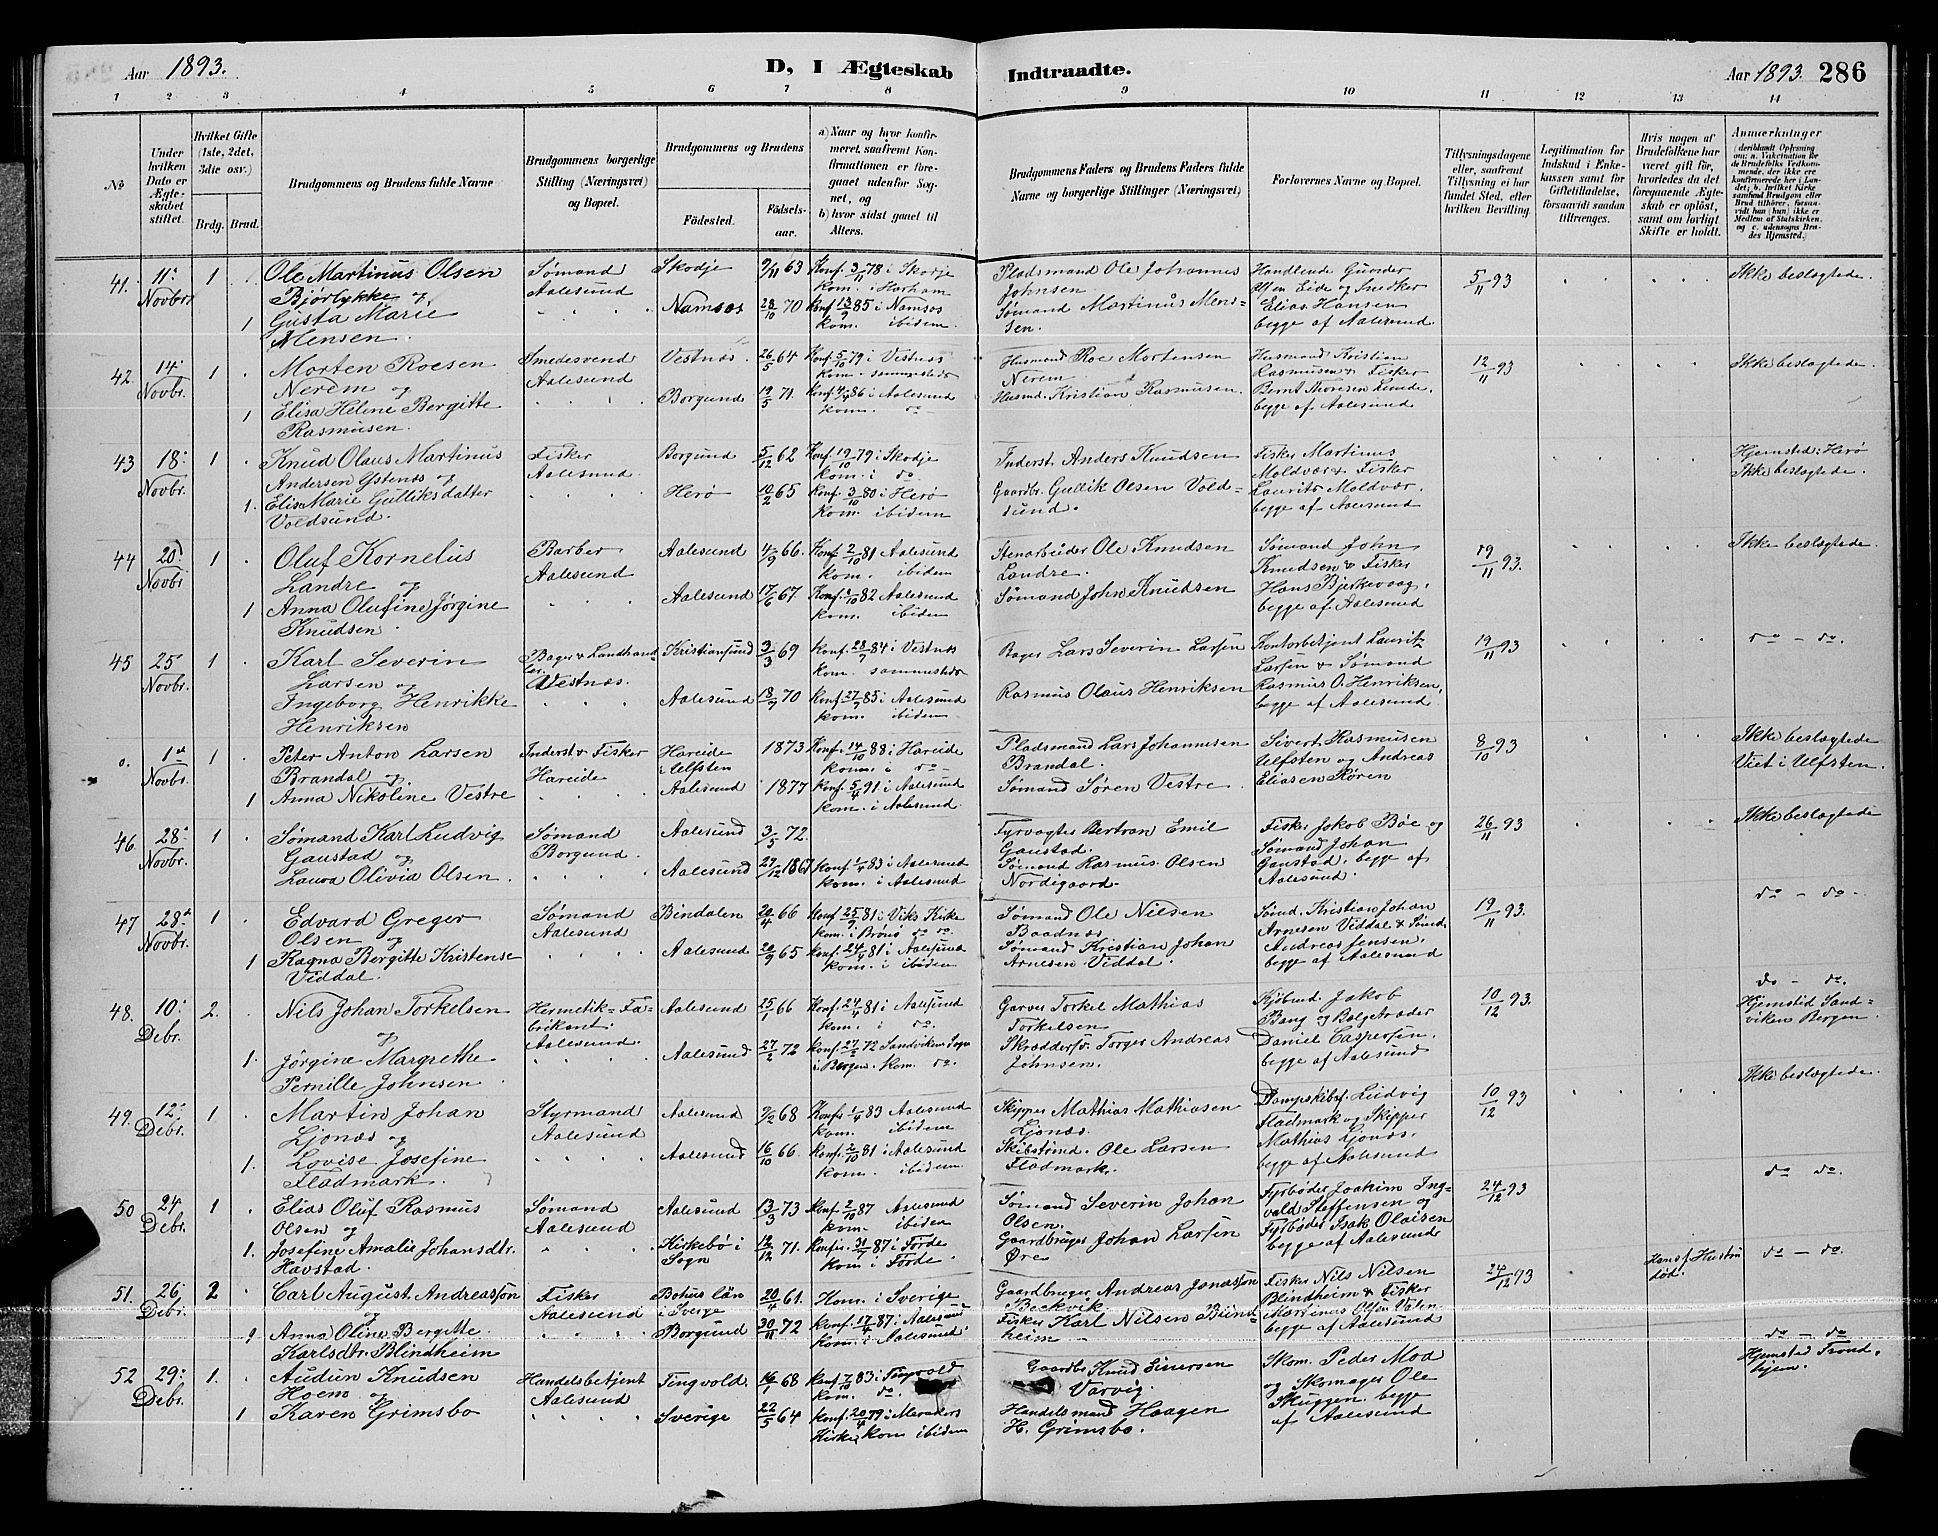 Aar 1893.
D, I Ægteskab Indtraadte.
Aar 1893. 286
1 2 3 4 5 6 7 8 9 10 11 12 13 14
No
Under hvilken Dato er Ægteskabet stiftet.
Hvilket Gifte (1ste, 2det, 3die osv.)
Brdg. Brud.
Brudgommens og Brudens fulde Navne
Brudgommens borgerlige Stilling (Næringsvei) og Bopæl.
Brudgommens og Brudens
Fødested.
Fødselsaar.
a) Naar og hvor konfirmeret, saafremt Konfirmationen er foregaaet udenfor Sognet, og
b) hvor sidst gaaet til Alters.
Brudgommens Faders og Brudens Faders fulde Navne og borgerlige Stillinger (Næringsvei)
Forlovernes Navne og Bopæl.
Tillysningsdagene eller, saafremt Tillysning ei har fundet Sted, efter hvilken Bevilling
Legitimation for Indskud i Enkekassen samt for Giftetilladelse, forsaavidt saadan tiltrænges.
Hvis nogen af Brudefolkene har været gift før, hvorledes da det foregaaende Ægteskab er opløst, samt om lovligt Skifte er holdt.
Anmærkninger (deriblandt Oplysning om: a. Vakcination for de Brudefolks Vedkommende, der ikke er konfirmerede her i Landet; b. hvilket Kirkesamfund Brudgom eller Brud tilhører, forsaavidt han (hun) ikke er Medlem af Statskirken, og c. udensogns Brudes Hjemsted.)
41. 11: Novbr. 1 Ole Martinus Olsen Bjørlykke og Sømand Aalesund Skodje 9/11 63 Konf. 3/11 78 i Skodje kom. i Harham Pladsmand Ole Johannes Johnsen Handlende Gunder Olsen Eide og Snedker Elias Hansen begge af Aalesund 5/11 93 Ikke beslægtede.
1 Gusta Marie Mensen. Namsos 28/10 70 Konf 13/9 85 i Namsos kom. ibidem. Sømand Martinus Mensen.
42 14 Novbr. 1 Morten Roesen Nerem og Smedesvend Aalesund Vestnæs 26/5 64 Konf 5/10 79 i Vestnæs kom. sammesteds Husmand Roe Mortensen Nerem Husmand Kristian Rasmusen & Fisker Bernt Thoresen Lunde, begge af Aalesund 12/11 93 Ikke beslægtede.
1 Elisa Helene Bergitte Rasmusen. Borgund 19/5 71. Konf 4/4 86 i Aalesund kom. do Husmd. Kristian Rasmusen.
43 18: Novbr. 1 Knud Olaus Martinus Andersen Ystenes og Fisker Aalesund. Borgund 5/12 62 Konf 19/10 79 i Skodje kom. i do. Inderst. Anders Knudsen Fisker Martinus Moldvær & Fisker Laurits Moldvær. begge af Aalesund Hjemsted: Herø Ikke beslægtede.
1. Elisa Marie Gulliksdatter Voldsund. Herø 10/2 65 Konf. 3/10 80 i Herø kom. ibidem Gaardbr. Gullik Olsen Voldsund.
44 20 Novbr. 1 Oluf Kornelius Landre og Barber Aalesund Aalesund 4/9 66. Konf 2/10 81 Aalesund kom. ibidem Stenarbeider Ole Knudsen Landre. Sømand John Knudsen & Fisker Hans Bjerkevaag, begge af Aalesund 19/11 93. Ikke beslægtede
1 Anna Olufine Jørgine Knudsen. Aalesund 17/6 67. Konf. 1/10 82 Aalesund kom. ibidem Sømand John Knudsen
45 25 Novbr. 1 Karl Severin Larsen og Bager & Landhandler. Vestnæs. Kristiansund 3/3 69 Konf. 28/9 84 i Vestnæs kom. sammesteds Bager Lars Severin Larsen Kontorbetjent Lauritz Larsen & Sømand Rasmus O. Henriksen, begge af Aalesund 19/11 93 do - do.
Ingeborg Henrikke Henriksen Aalesund 18/9 70 Konf 27/9 85 i Aalesund kom. ibidem Rasmus Olaus Henriksen
o. 1st Novbr. 1 Peter Anton Larsen Brandal og Inderst & Fisker Hareide Hareide Ulfsten 1873 Konf. 14/10 88 i Hareide kom. i do Pladsmand Lars Johannesen Brandal. Sivert Rasmusen Ulfsten og Andreas Eliasen Røren 8/10 93 Ikke beslægtede Viet i Ulfsten.
1 Anna Nikoline Vestre Aalesund 1877 Konf 5/4 91 i Aalesund kom. i Aalesund. Sømand Søren Vestre
46. 28: Novbr. 1 Sømand Karl Ludvig Gaustad og Sømand Borgund. Aalesund 3/5 72. Fyrvogter Bertran Emil Gaustad. Fisker Jakob Bøe og Sømand Johan Gaustad. begge af Aalesund. 26/11 93 Ikke beslægtede
Laura Olivia Olsen. Aalesund 27/12 1867 Konf 1/4 83 i Aalesund kom. i Aalesund Sømand Rasmus Olsen Nordigaard.
47 28 Novbr. 1 Edvard Greger Olsen og Sømand Aalesund Bindalen 20/4 66 Konf 25/9 81 i Viks Kirke kom. i Brønø do. Sømand Ole Nilsen Baadnæs Sømd. Kristian Johan Arnesen Viddal & Sømd. Andreas Jensen. begge af Aalesund 19/11 93. do - do.
1 Ragna Bergitte Kristense Viddal. Aalesund 20/9 65 Konf 24/4 81 i Aalesund kom. i ibidem Sømand Kristian Johan Arnesen Viddal.
48. 10: Debr. 2. Nils Johan Torkelsen og Hermetik-Fabrikant. Aalesund. Aalesund 25/1 66 Konf. 24/4 81 i Aalesund kom. i do. Garver Torkel Mathias Torkelsen Kjøbmd. Jakob Bang og Bølgetræder Daniel Caspersen. begge af Aalesund 10/12 93. do - do. Hjemsted Sandviken Bergen.
1. Jørgine Margrethe Pernille Johnsen Aalesund 27/2 72 Konf 27/2 72 Sandvikens Sogn i Bergen. kom. do. Skræddersv. Torger Andreas Johnsen.
49. 12: Debr. 1 Martin Johan Ljonæs og Styrmand Aalesund Aalesund 9/2 68 Konfir 1/4 83 Aalesund kom. ibidem Skipper Mathias Mathiasen Ljonæs. Dampskibsf. Ludvig Fladmark og Skipper Mathias Ljonæs. begge af Aalesund 10/12 93 Ikke beslægtede.
1. Lovise Josefine Fladmark. Aalesund 16/10 66. Konf. 2/10 81 i Aalesund kom. ibidem. Skibstømd. Ole Larsen Fladmark.
50 24 Debr. 1 Elias Oluf Rasmus Olsen og Sømand Aalesund Aalesund 13/3 73 Konf. 2/10 87 Aalesund kom. ibidem Sømand Severin Johan Olsen. Fyrbøder Joakim Ingvald Steffensen og Fyrbøder Isak Olaisen begge af Aalesund 24/12 93 do do.
1. Josefine Amalie Johansdtr. Havstad. Kirkebø i Sogn 12/12 71. Konfir. 31/7 87 i Førde kom i Førde. Gaardbruger Johan Larsen Øre
51. 26 Debr. 2 Carl August Andreassøn og Fisker Aalesund Bohus län i Sverge 20/4 61. Kom. i Sverige Gaardbruger Andreas Jonassøn Beckvik Fisker Nils Nilsen Blindheim & Fisker Martinus Olsen begge af Aalesund 24/12 93 Hans f. Hustru død. do - do.
1 Anna Oline Bergitte Karlsdtr. Blindheim Borgund 30/11 72 Konf. 17/4 87 i Aalesund kom i Aalesund. Fisker Karl Nilsen Blindheim
52 29: Debr. 1. Audun Knudsen Hoem og Handelsbetjent Aalesund Tingvold. 16/1 68 Konf 7/10 83 i Tingvold kom. do. Gaardbr. Knud Einersen Varvig. Skom. Peder Moa og Skomager Ole Skuggen. begge af Aalesund do - do Hjemsted Trondhjem.
1 Karen Grimsbo Sverige 22/5 64 Konf. 20/4 79 i Kirke kom ibidem Handelsmand Haagen H. Grimsbo.